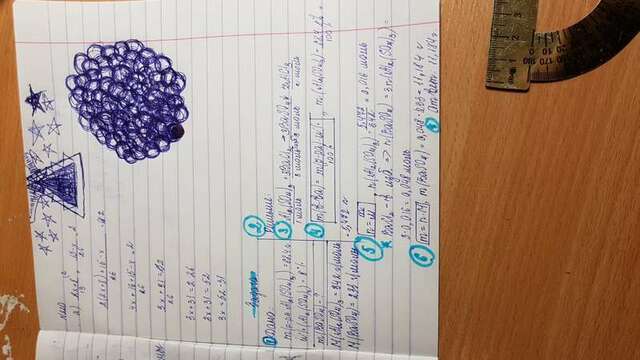 а) 2x+8/13 + 15-x/26 = 2
2(2x+8)+15-x/26 = 2
4x+16+15-x/26 = 2
3x+31/26 = 2
3x+31=2·26
3x+31=52
3x=52-31
Задача
① Дано:
m(BaSO₄)-?
M(Al₂(SO₄)₃)=342 г/моль
M(BaSO₄)=233 г/моль
②
Решение:
③ Al₂(SO₄)₃+3BaCl₂→3BaSO₄+2AlCl₃
1 моль 3 моль 3 моль 2 моль
④ m(в-ва)=m(р-ра)·w%/100%
⑤ n=m/M, n(Al₂(SO₄)₃)=5,472/342=0,016 моль
BaCl₂-в изб ⇒ n(BaSO₄)=3n(Al₂(SO₄)₃)=
3·0,016=0,048 моль
⑥ m=n·M, m(BaSO₄)=0,048·233=11,184 г
Ответ: 11,184г